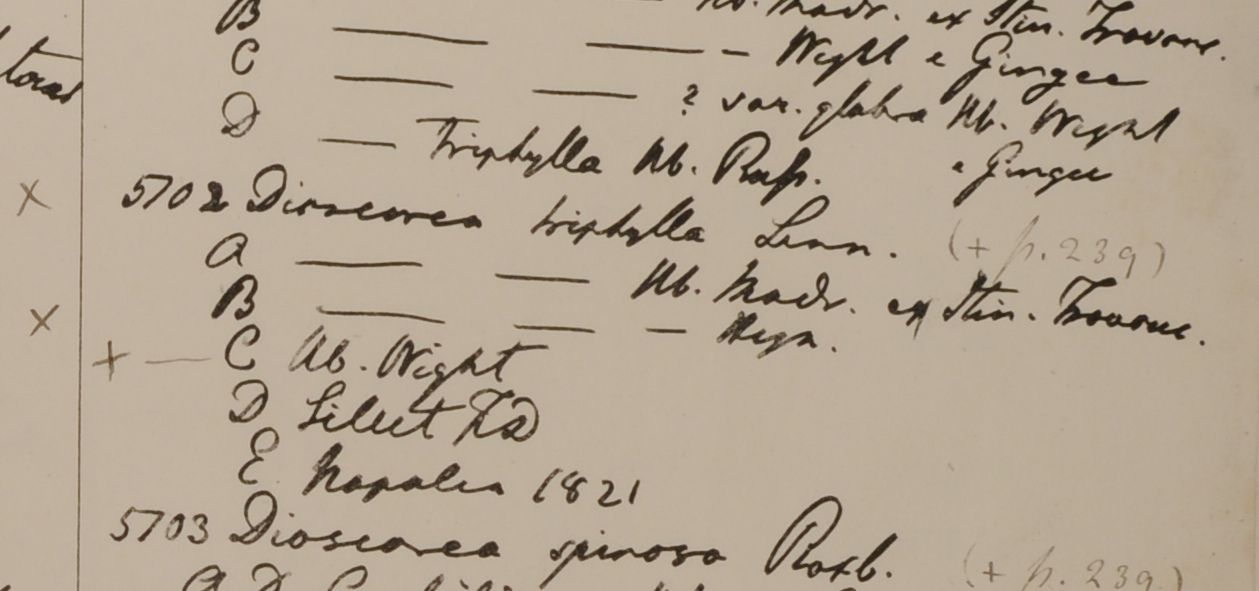 B Hb. Madr. ex Itin. Travanc.
C — — - Wight e Gingee
D — — ? var. glabra Hb. Wight e Gingee
— triphylla Hb. Roxb.
5702 Dioscorea triphylla Linn. (+ p. 239)
A — — Hb. Madr. ex Itin. Travanc.
B — — - Heyn.
+ — C Hb. Wight
D Sillet FD
E Napalia 1821
5703 Dioscorea spinosa Roxb. (+ p. 239)